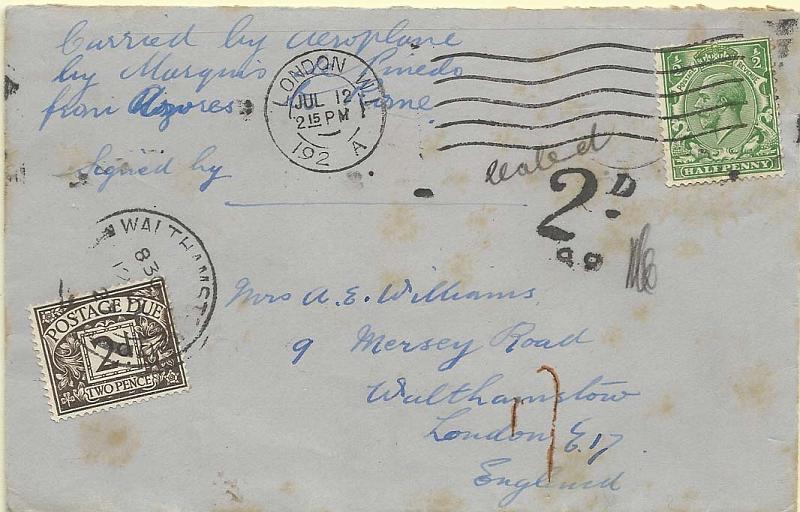 Carried by Aeroplane
by Marquis Pinedo
from Azores Rome
Signed by
LONDON W.1
JUL 12
2 15 PM
192
A
½ ½
HALFPENNY
sealed
2D.
WALTHAMST
83
POSTAGE DUE
2d.
TWO PENCE
Mrs A. E. Williams,
9 Mersey Road
Walthamstow
London E.17
England